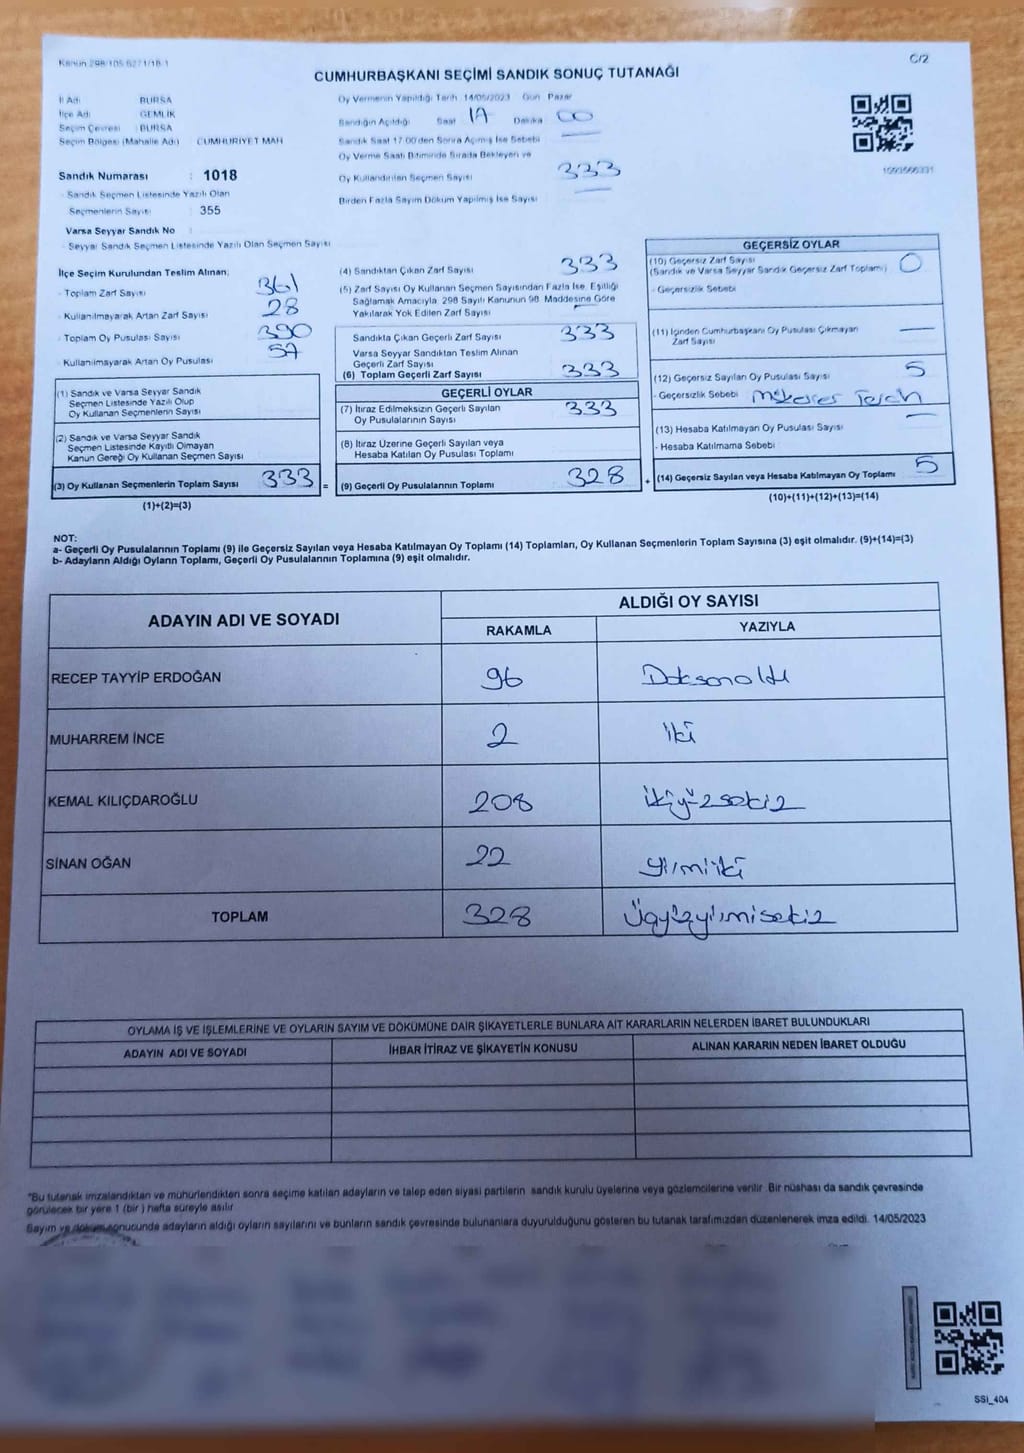 Kanun 298/105 6271/18-1
C/2
CUMHURBAŞKANI SEÇİMİ SANDIK SONUÇ TUTANAĞI
İl Adı BURSA
İlçe Adı GEMLİK
Seçim Çevresi : BURSA
Seçim Bölgesi (Mahalle Adı) CUMHURİYET MAH
Sandık Numarası : 1018
- Sandık Seçmen Listesinde Yazılı Olan
Seçmenlerin Sayısı : 355
Varsa Seyyar Sandık No :
- Seyyar Sandık Seçmen Listesinde Yazılı Olan Seçmen Sayısı
Oy Vermenin Yapıldığı Tarih 14/05/2023 Gün Pazar
Sandığın Açıldığı Saat 17 Dakika 00
Sandık Saat 17:00'den Sonra Açılmış İse Sebebi
Oy Verme Saati Bitiminde Sırada Bekleyen ve
Oy Kullandırılan Seçmen Sayısı 333
Birden Fazla Sayım Döküm Yapılmış İse Sayısı
İlçe Seçim Kurulundan Teslim Alınan;
- Toplam Zarf Sayısı 361
- Kullanılmayarak Artan Zarf Sayısı 28
- Toplam Oy Pusulası Sayısı 390
- Kullanılmayarak Artan Oy Pusulası 57
(1) Sandık ve Varsa Seyyar Sandık
Seçmen Listesinde Yazılı Olup
Oy Kullanan Seçmenlerin Sayısı
(2) Sandık ve Varsa Seyyar Sandık
Seçmen Listesinde Kayıtlı Olmayan
Kanun Gereği Oy Kullanan Seçmen Sayısı
(3) Oy Kullanan Seçmenlerin Toplam Sayısı 333 =
(1)+(2)=(3)
(4) Sandıktan Çıkan Zarf Sayısı 333
(5) Zarf Sayısı Oy Kullanan Seçmen Sayısından Fazla İse, Eşitliği
Sağlamak Amacıyla 298 Sayılı Kanunun 98. Maddesine Göre
Yakılarak Yok Edilen Zarf Sayısı -
Sandıkta Çıkan Geçerli Zarf Sayısı 333
Varsa Seyyar Sandıktan Teslim Alınan
Geçerli Zarf Sayısı
(6) Toplam Geçerli Zarf Sayısı 333
GEÇERLİ OYLAR
(7) İtiraz Edilmeksizin Geçerli Sayılan 333
Oy Pusulalarının Sayısı
(8) İtiraz Üzerine Geçerli Sayılan veya
Hesaba Katılan Oy Pusulası Toplamı
(9) Geçerli Oy Pusulalarının Toplamı 328 +
GEÇERSİZ OYLAR
(10) Geçersiz Zarf Sayısı 0
(Sandık ve Varsa Seyyar Sandık Geçersiz Zarf Toplamı)
- Geçersizlik Sebebi
(11) İçinden Cumhurbaşkanı Oy Pusulası Çıkmayan
Zarf Sayısı
(12) Geçersiz Sayılan Oy Pusulası Sayısı 5
- Geçersizlik Sebebi Mükerrer Tercih
(13) Hesaba Katılmayan Oy Pusulası Sayısı
- Hesaba Katılmama Sebebi
(14) Geçersiz Sayılan veya Hesaba Katılmayan Oy Toplamı 5
(10)+(11)+(12)+(13)=(14)
NOT:
a- Geçerli Oy Pusulalarının Toplamı (9) ile Geçersiz Sayılan veya Hesaba Katılmayan Oy Toplamı (14) Toplamları, Oy Kullanan Seçmenlerin Toplam Sayısına (3) eşit olmalıdır. (9)+(14)=(3)
b- Adayların Aldığı Oyların Toplamı, Geçerli Oy Pusulalarının Toplamına (9) eşit olmalıdır.
ADAYIN ADI VE SOYADI
ALDIĞI OY SAYISI
RAKAMLA YAZIYLA
RECEP TAYYİP ERDOĞAN 96 Doksanaltı
MUHARREM İNCE 2 iki
KEMAL KILIÇDAROĞLU 208 ikiyüzsekiz
SİNAN OĞAN 22 yirmiiki
TOPLAM 328 Üçyüzyirmisekiz
OYLAMA İŞ VE İŞLEMLERİNE VE OYLARIN SAYIM VE DÖKÜMÜNE DAİR ŞİKAYETLERLE BUNLARA AİT KARARLARIN NELERDEN İBARET BULUNDUKLARI
ADAYIN ADI VE SOYADI İHBAR İTİRAZ VE ŞİKAYETİN KONUSU ALINAN KARARIN NEDEN İBARET OLDUĞU
*Bu tutanak imzalandıktan ve mühürlendikten sonra seçime katılan adayların ve talep eden siyasi partilerin sandık kurulu üyelerine veya gözlemcilerine verilir. Bir nüshası da sandık çevresinde
görülecek bir yere 1 (bir ) hafta süreyle asılır.
Sayım ve döküm sonucunda adayların aldığı oyların sayılarını ve bunların sandık çevresinde bulunanlara duyurulduğunu gösteren bu tutanak tarafımızdan düzenlenerek imza edildi. 14/05/2023
SSİ_404